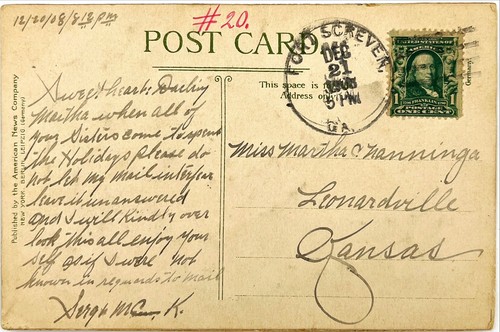 12/20/08/8 18 pm
#20.
POST CARD
FORT SCREVEN,
DEC
21
1908
5 PM
GA.
UNITED STATES OF
AMERICA
FRANKLIN
POSTAGE
ONE CENT
This space is
Address only
Germany.
Published by the American News Company
NEW YORK. BERLIN
Sweetheart Darling
Martha when all of
your Sisters come to spent
the Holidays please do
not let my mail interfear
leave it unanswered
and I will kindly over
look this all enjoy your
self as if I were not
known in regards to mail
Sergt K.
Miss Martha C Nanninga
Leonardville
Kansas